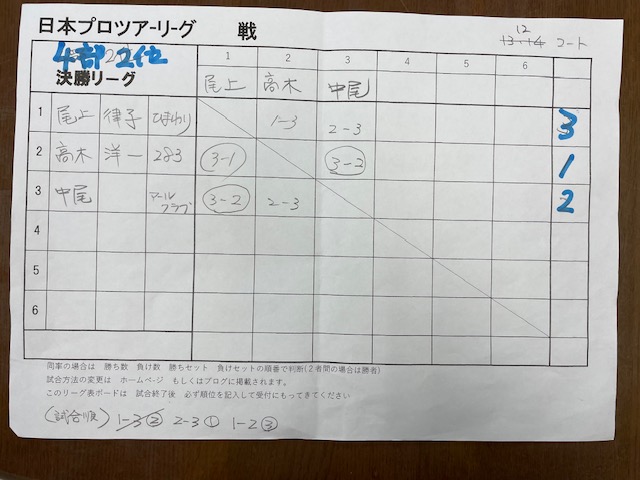 日本プロツアーリーグ 戦
12
13・14 コート
4部 2位
決勝リーグ
1 2 3 4 5 6
尾上 高木 中尾
1 尾上 律子 ひまわり 1-3 2-3 3
2 高木 洋一 283 3-1 3-2 1
3 中尾 アールクラブ 3-2 2-3 2
4
5
6
同率の場合は 勝ち数 負け数 勝ちセット 負けセットの順番で判断(2者間の場合は勝者)
試合方法の変更は ホームページ もしくはブログに掲載されます。
このリーグ表ボードは 試合終了後 必ず順位を記入して受付にもってきてください
(試合順) 1-3② 2-3① 1-2③